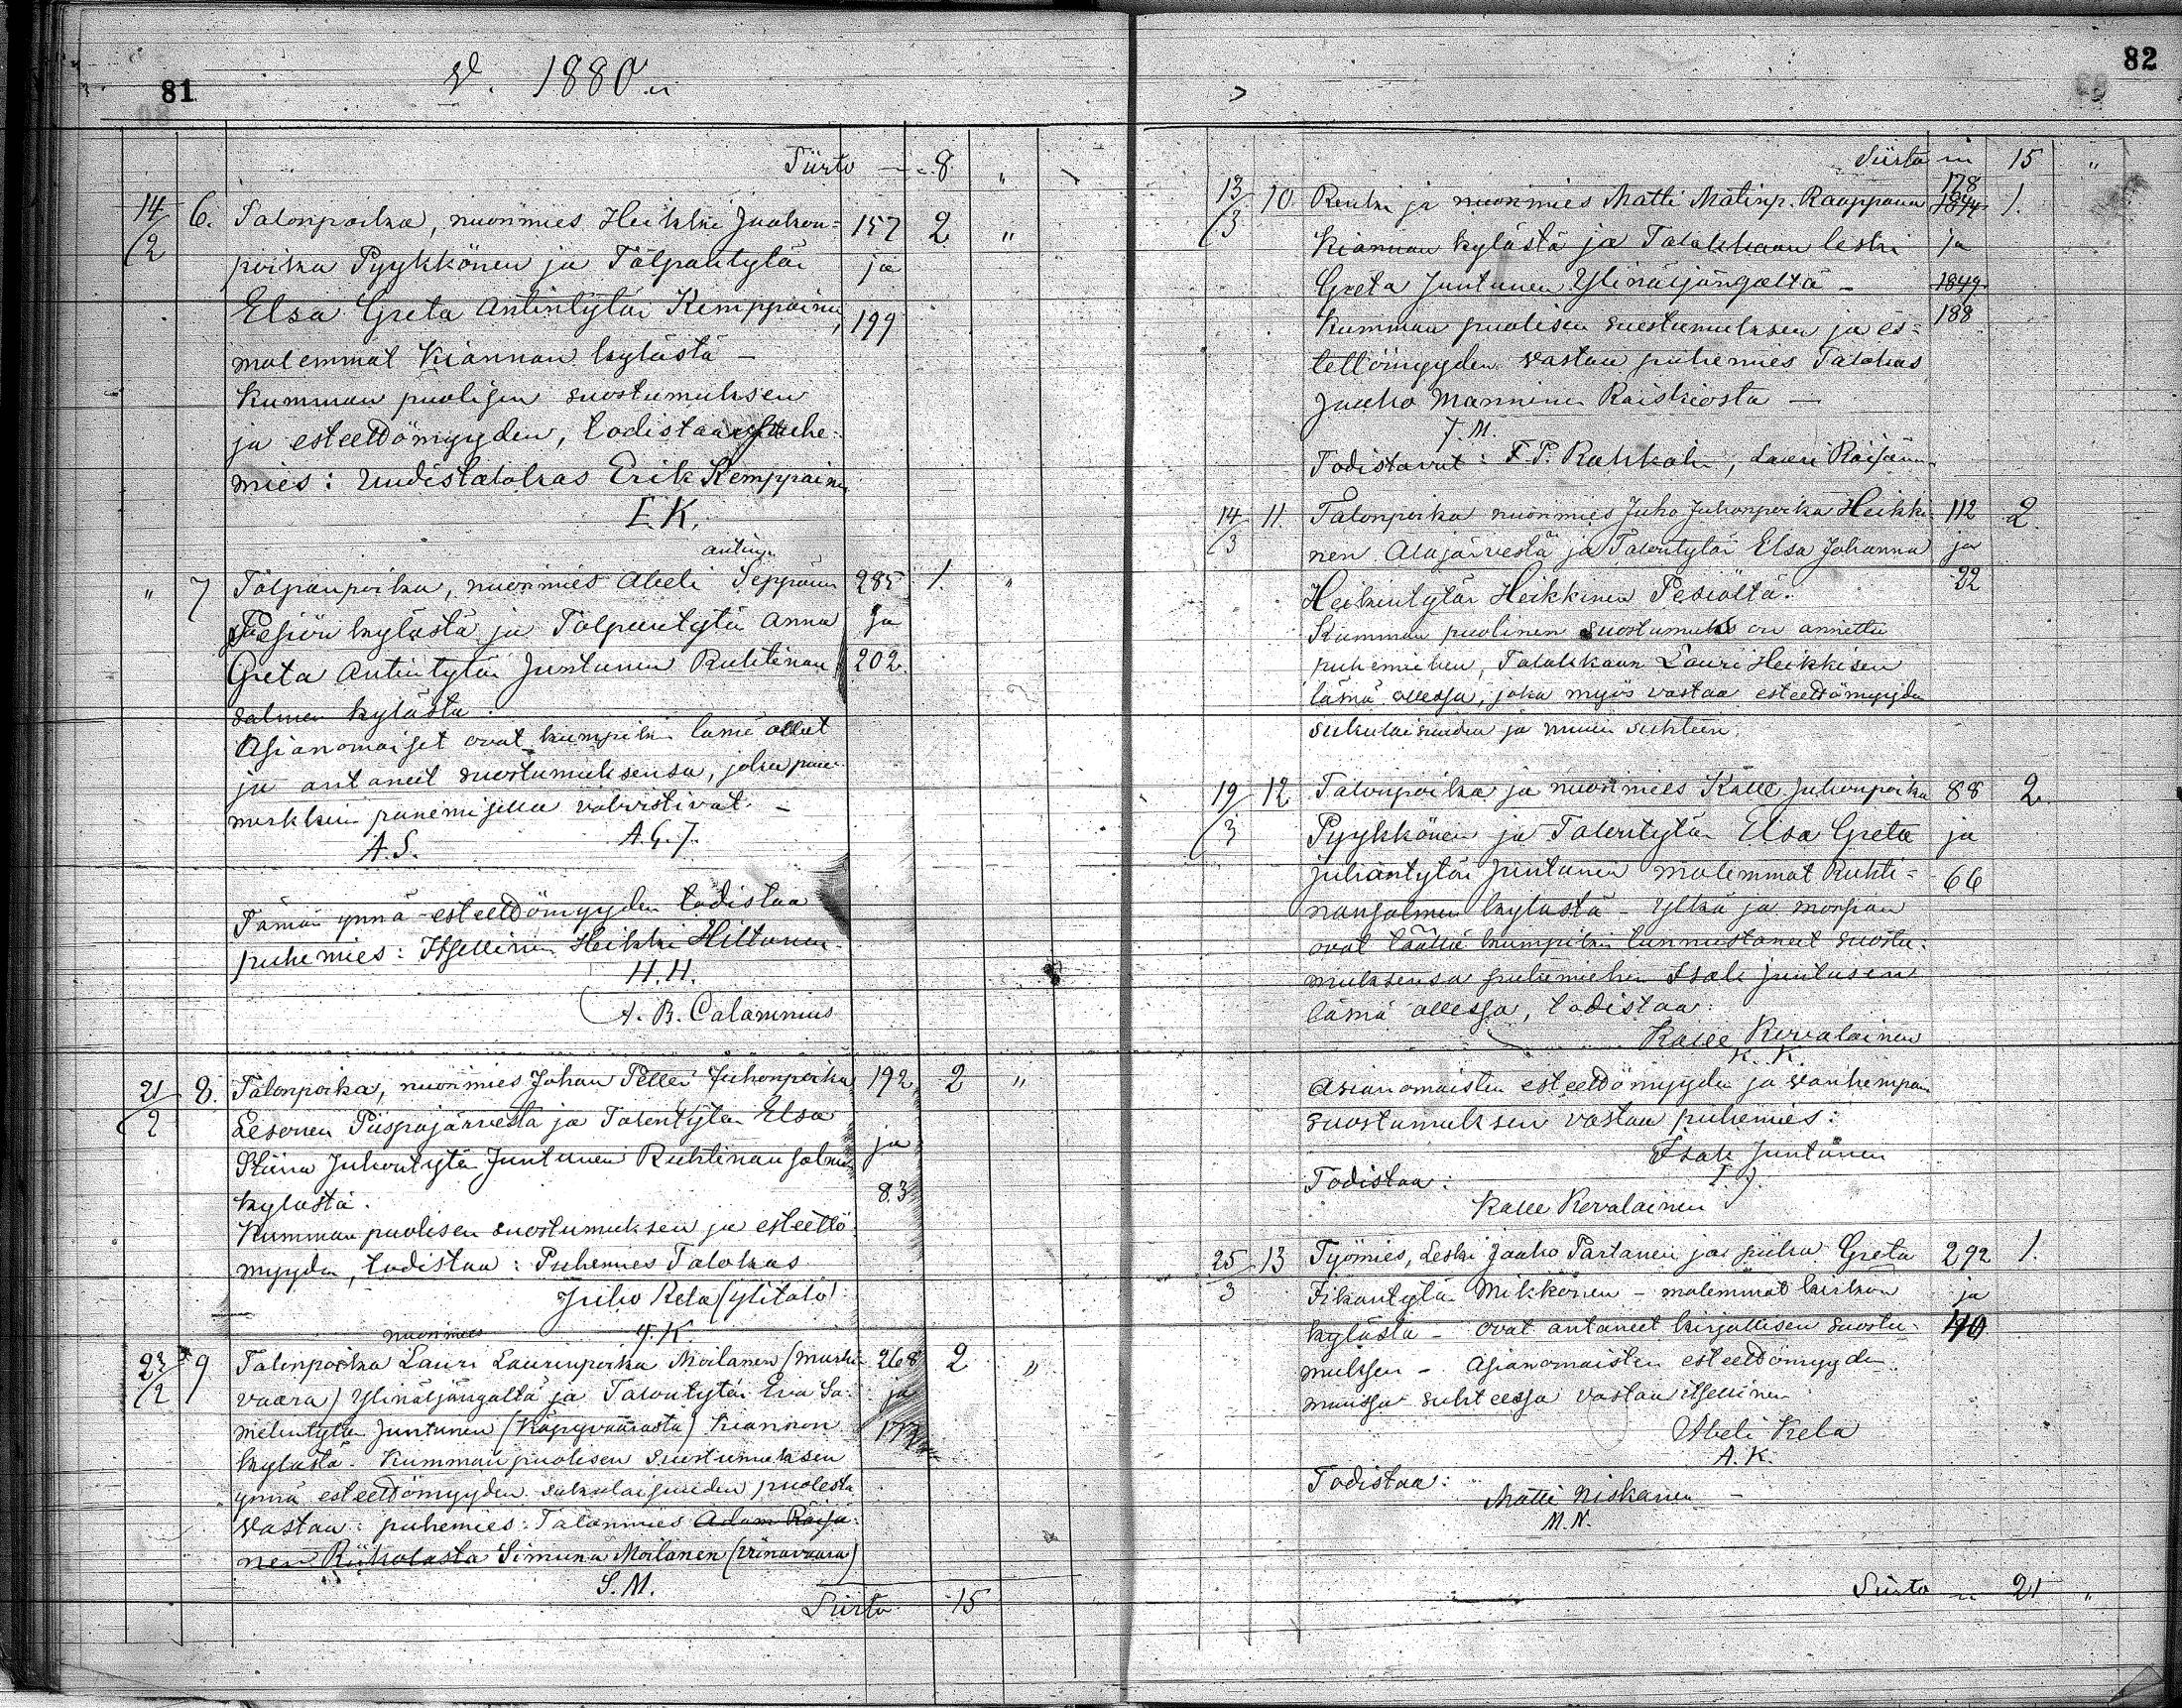 81
V. 1880.
Siirto — 8 "
14/2 6. Talonpoika, nuorimies Heikki Juahon= 157 2 "
poika Pyykkönen ja Tölpäntytär ja
Elsa Greta Antintytär Kemppainen, 199
molemmat Kiannan kylästä —
Kumman puolisen suostumuksen
ja esteettömyyden, todistaa puhe-
mies: Uudistalokas Erik Kemppainen
E.K.
antinp.
" 7 Tölpänpoika, nuorimies Abeli Seppänen 285 1. "
Pesiön kylästä ja Tölpäntytär Anna ja
Greta Antintytär Juntunen Ruhtinan 202.
salmen kylästä.
Asianomaiset ovat kumpikin läsnä olleet
ja antaneet suostumuksensa, jonka puu-
merkkein panemisella vahvistivat. —
A.S. A.G.J.
Tämän ynnä esteettömyyden todistaa
puhemies: Itsellinen Heikki Hiltunen.
H.H.
A. B. Calamnius
21/2 8. Talonpoika, nuorimies Johan Petter Juhonpoika 192 2 "
Lesonen Piispajärvestä ja Talontytär Elsa
Stiina Juhontytär Juntunen Ruhtinansalmen ja
kylästä. 83
Kumman puolisen suostumuksen ja esteettö-
myyden, todistaa: Puhemies Talokas
Juho Kela (Ylitalo)
J.K.
nuorimies
23/2 9 Talonpoika Lauri Laurinpoika Moilanen (Murhi- 268 2 "
vaara) Ylinäljängältä ja Talontytär Eva Sa- ja
melintytär Juntunen (Käpyvaarasta) Kiannon 173
kylästä. Kumman puolisen suostumuksen
ynnä esteettömyyden sukulaisuuden puolesta
vastaa: puhemies: Talonmies Adam Räisä-
nen Riiholasta Simuna Moilanen (Vänävaara)
S.M.
Siirto 15
82
Siirto 15 "
13/3 10. Renki ja nuorimies Matti Matinp. Raappana 178 1.
Kiannan kylästä ja Talokkaan leski ja
Greta Juntunen Ylinäljängältä — 1849
Kumman puolisen suostumuksen ja es- 188
teettömyyden vastaa puhemies Talokas
Jaako Manninen Raiskiosta —
J.M.
Todistavat: F.P. Rahkola, Lauri Räisänen
14/3 11. Talonpoika nuorimies Juho Juhonpoika Heikki- 112 2.
nen Alajärvestä ja Talontytär Elsa Johanna ja
Heikintytär Heikkinen Pesiöltä. 22
Kumman puolinen suostumus on annettu
puhemiehen, Talokkaan Lauri Heikkisen
läsnä ollessa, joka myös vastaa esteettömyyden
sukulaisuuden ja muun suhteen.
19/3 12 Talonpoika ja nuorimies Kalle Juhonpoika 88 2.
Pyykkönen ja Talontytär Elsa Greta ja
Juhantytär Juntunen molemmat Ruhti= 66
nansalmen kylästä — Ylkä ja morsian
ovat täällä kumpikin tunnustaneet suostu-
muksensa puhemiehen Isak Juntusen
läsnä ollessa, todistaa:
Kalle Kervalainen
K. K.
Asianomaisten esteettömyyden ja vanhempain
suostumuksen vastaa puhemies:
Isak Juntunen
I J.
Todistaa:
Kalle Kervalainen
25/3 13 Työmies, Leski Jaako Partanen ja piika Greta 292 1.
Fikantytär Mikkönen — molemmat kirkon ja
kylästä — ovat antaneet kirjallisen suostu- 40
muksen — Asianomaisten esteettömyyden
muussa suhteessa vastaa itsellinen
Abeli Kela
A.K.
Todistaa:
Matti Niskanen —
M.N.
Siirto 21 "